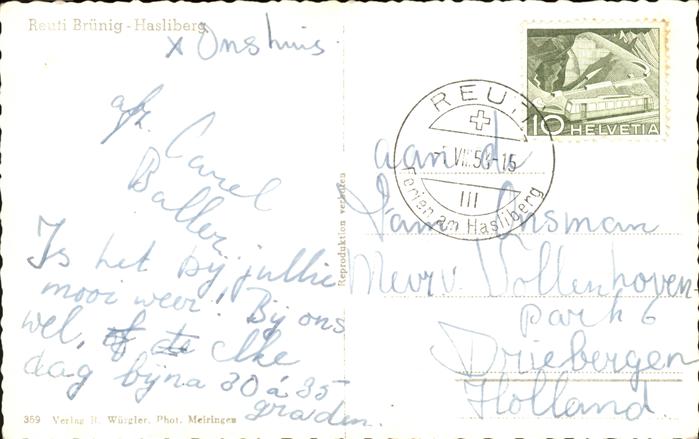 Reuti Brünig - Hasliberg
x Ons huis
afz. Carel
Baller
Is het bij jullie
mooi weer! Bij ons
wel, elke
dag bijna 30 á 35
graden.
359 Verlag R. Würgler, Phot. Meiringen
Reproduktion verboten
10 HELVETIA
REUTI
VIII 5 -15
III
Ferien am Hasliberg
aan de
Fam Ensman
Meer v. Vollenhoven
Park 6
Driebergen
Holland.